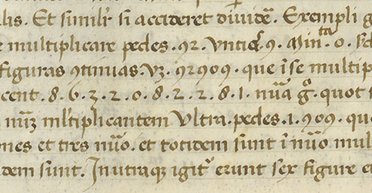 lis. Et similr si accideret diuidē. Exempli g
multiplicare pedes. 92. Vntie 9. 9. Min. ta 0. s
figuras 9tinuas. Vz. 92909. que īse multip
cent. 8. 6. 3. 2. 0. 8. 2. 2. 8. 1. quot
multiplicantem Vltra. pedes. 1. 909. qu
nes et tres nūo. et totidem sunt ī nūo mul
dem sunt. In utraque igit erunt sex figure e